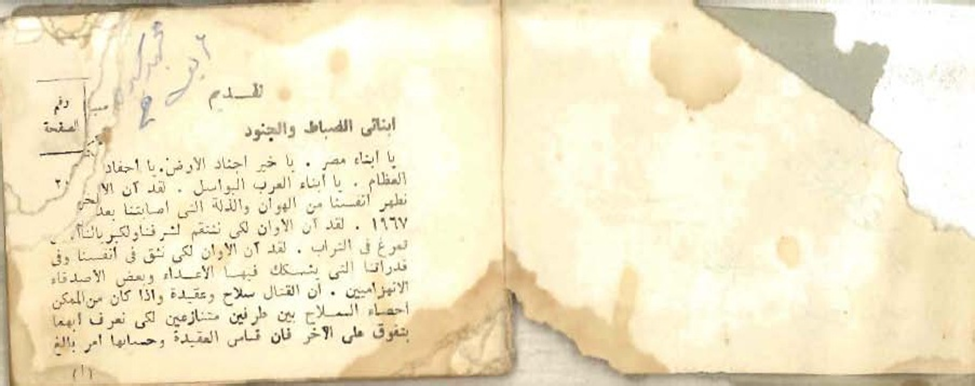 تقديم
أبنائى الضباط والجنود
يا أبناء مصر . يا خير أجناد الأرض. يا أحفاد
العظام . يا أبناء العرب البواسل . لقد آن
نطهر أنفسنا من الهوان والذلة التى أصابتنا بعد
١٩٦٧ . لقد آن الأوان لكى ننتقم لشرفنا
تمرغ فى التراب . لقد آن الأوان لكى نثق فى أنفسنا وفى
قدراتنا التى يشكك فيها الأعداء وبعض الأصدقاء
الانهزاميين . أن القتال سلاح وعقيدة واذا كان من الممكن
احصاء السلاح بين طرفين متنازعين لكى نعرف أيهما
يتفوق على الآخر فان قياس العقيدة وحسابها أمر بالغ
(١)
رقم
الصفحة